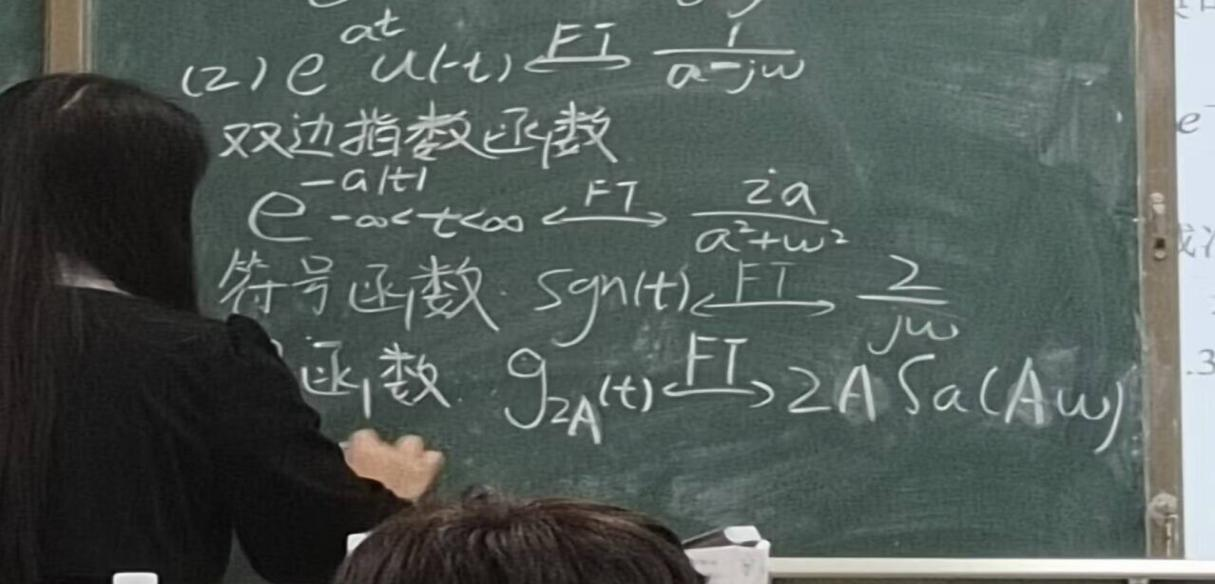 (2) e^{at} u(-t) ←FT→ 1/(a-jω)
双边指数函数
e^{-a|t|} -∞<t<∞ ←FT→ 2a/(a²+ω²)
符号函数. sgn(t) ←FT→ 2/(jω)
函数. g_{2A}(t) ←FT→ 2A Sa(Aω)